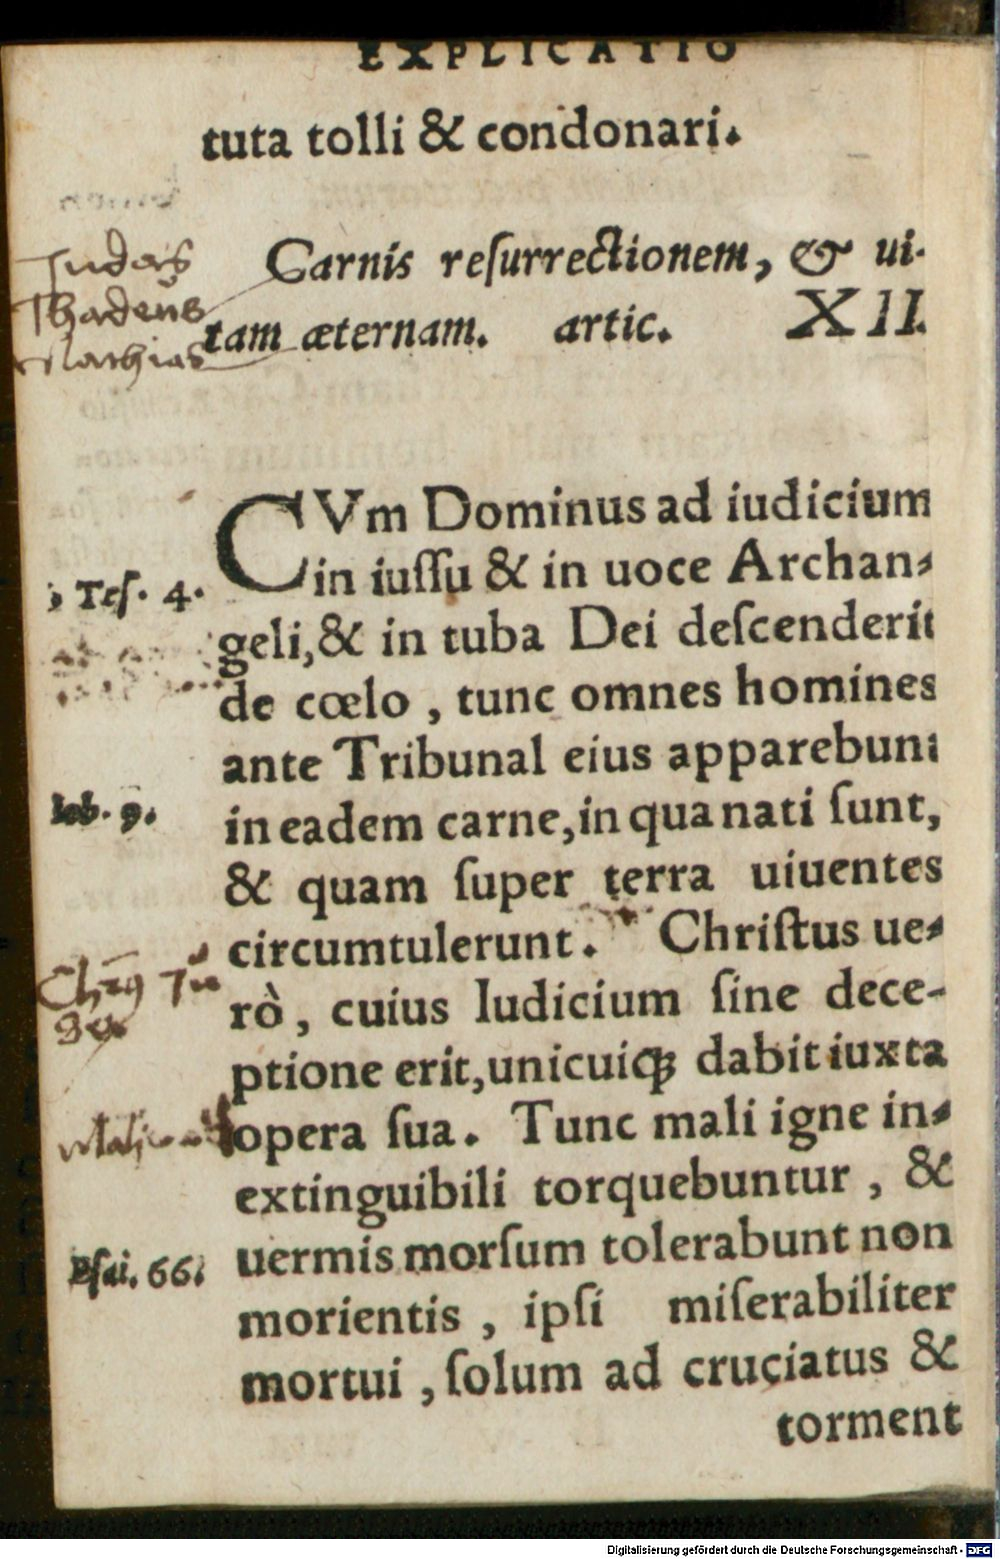 EXPLICATIO
tuta tolli & condonari.
Iudas
Thadeus
Mathias
Carnis reſurrectionem, & ui-
tam æternam. artic. XII.
CVm Dominus ad iudicium
in iuſſu & in uoce Archan-
Teſ. 4.
geli, & in tuba Dei deſcenderit
de cœlo, tunc omnes homines
ante Tribunal eius apparebunt
Iob. 9.
in eadem carne, in qua nati ſunt,
& quam ſuper terra uiuentes
circumtulerunt. Chriſtus ue-
rò, cuius Iudicium ſine dece-
ptione erit, unicuiq; dabit iuxta
opera ſua. Tunc mali igne in-
extinguibili torquebuntur, &
Eſai. 66.
uermis morſum tolerabunt non
morientis, ipſi miſerabiliter
mortui, ſolum ad cruciatus &
torment
Digitalisierung gefördert durch die Deutsche Forschungsgemeinschaft - DFG